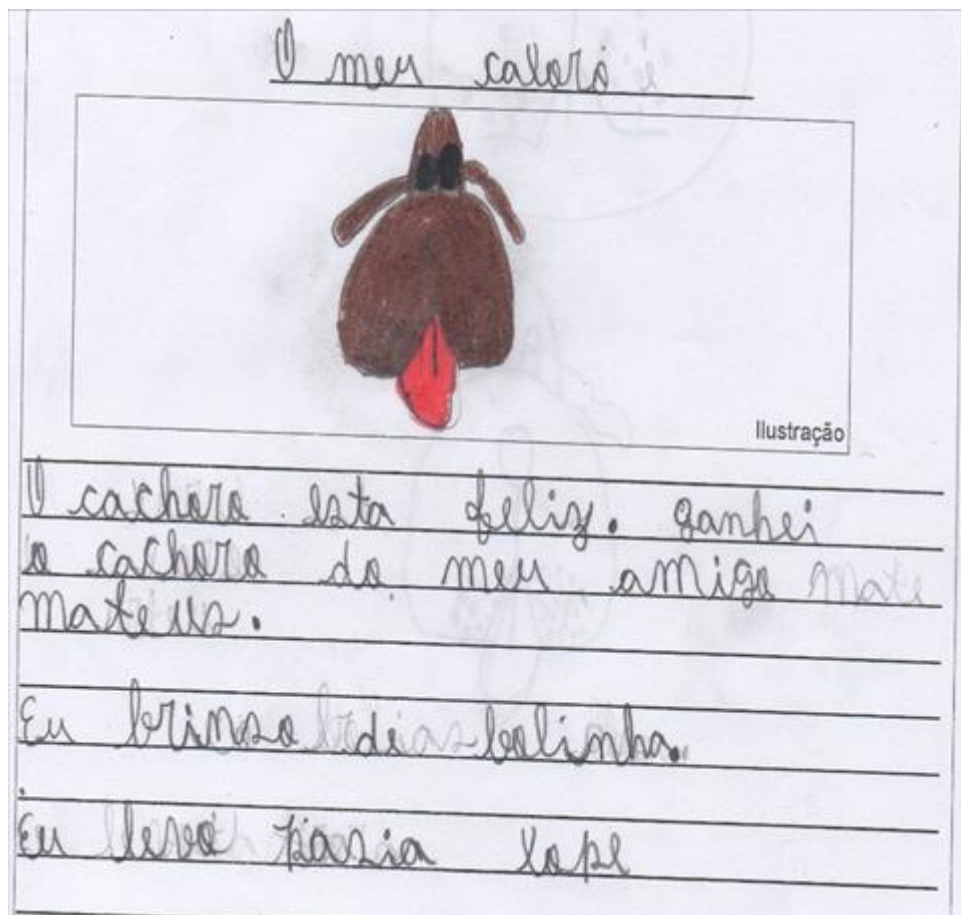 O meu caloró
Ilustração
O cachoro esta feliz. ganhei
o cachoro do meu amigo mate
mateus.
Eu brinso de bolinha.
Eu levo pasia